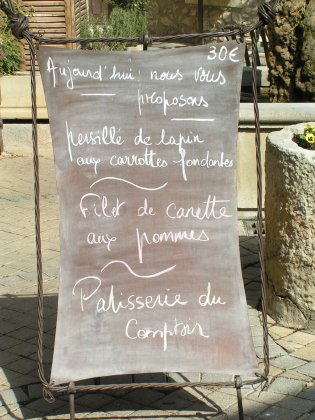 30€
Aujourd'hui nous vous
proposons
persillé de lapin
aux carrottes fondantes
Filet de canette
aux pommes
Patisserie du
Comptoir